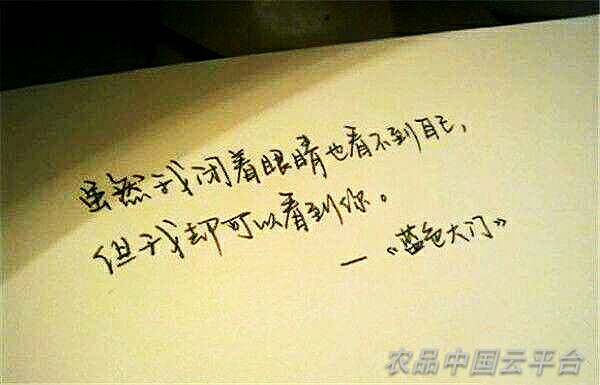 虽然我闭着眼睛也看不到自己，
但我却可以看到你。
—《蓝色大门》
农品中国云平台